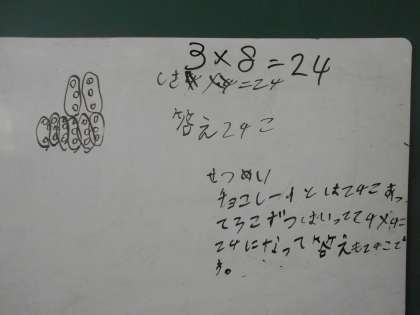 3×8=24
しき =24
答え 24こ
せつめい
チョコレートは24こあっ
て3こずつはいってて
24になって答えも24こで
す。